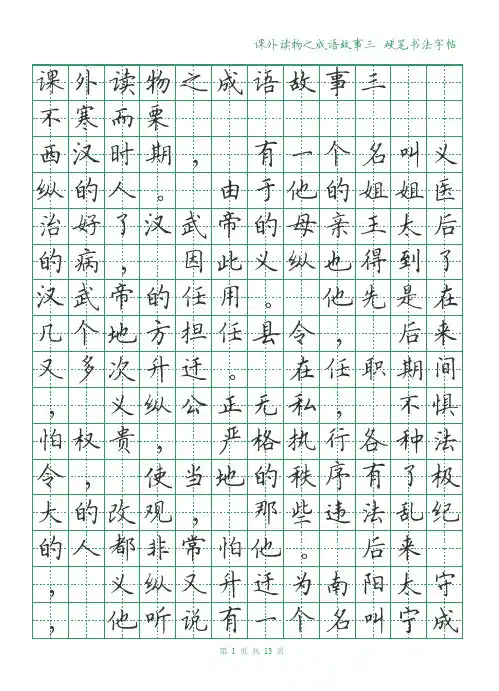 课外读物之成语故事三 硬笔书法字帖
课外读物之成语故事三
不寒而栗
西汉时期， 有一个名叫义
纵的人。 由于他的姐姐医
治好了汉武帝的母亲王太后
的病， 因此义纵也得到了
汉武帝的任用。 他先是在
几个地方担任县令， 后来
又多次升迁。 在任职期间
， 义纵公正无私， 不惧
怕权贵， 严格执行各种法
令， 使当地的秩序有了极
大的改观， 那些违法乱纪
的人都非常怕他。 后来
， 义纵又升迁为南阳太守
， 他听说有一个名叫宁成
第 1 页 共 13 页